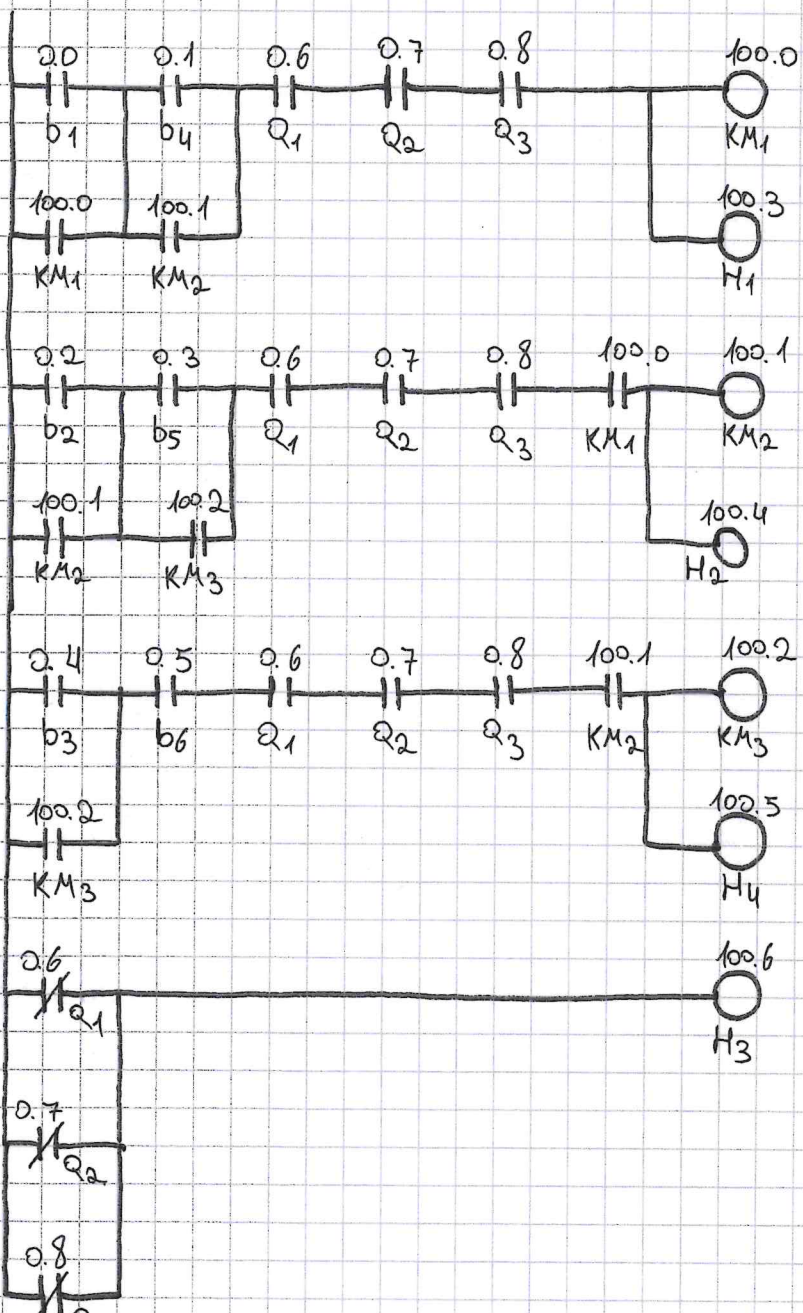 0.0 0.1 0.6 0.7 0.8 100.0
b1 b4 Q1 Q2 Q3 KM1
100.0 100.1 100.3
KM1 KM2 H1
0.2 0.3 0.6 0.7 0.8 100.0 100.1
b2 b5 Q1 Q2 Q3 KM1 KM2
100.1 100.2 100.4
KM2 KM3 H2
0.4 0.5 0.6 0.7 0.8 100.1 100.2
b3 b6 Q1 Q2 Q3 KM2 KM3
100.2 100.5
KM3 H4
0.6 100.6
Q1 H3
0.7
Q2
0.8